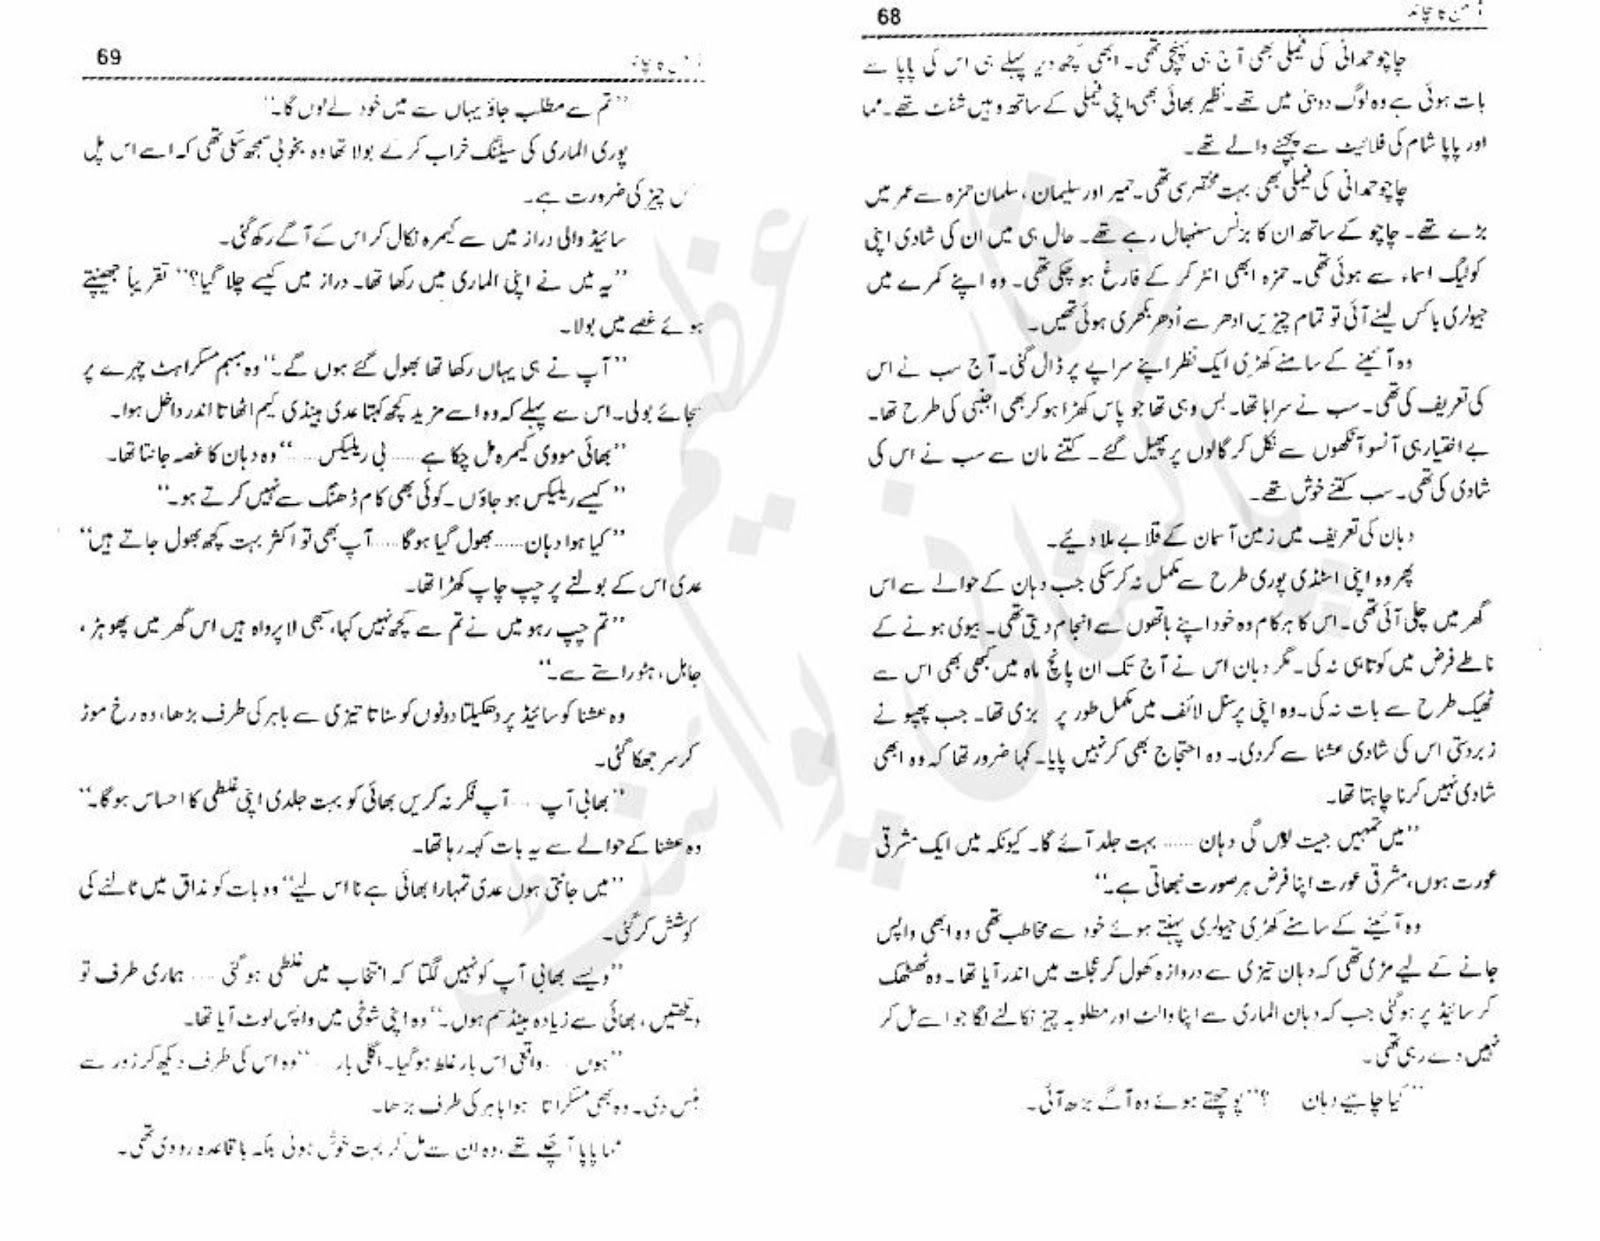 68
چاچو حمدانی کی فیملی بھی آج ہی پہنچی تھی۔ ابھی کچھ دیر پہلے ہی اس کی پاپا سے
بات ہوئی ہے وہ لوگ دوبئی میں تھے۔ نظیر بھائی بھی اپنی فیملی کے ساتھ وہیں شفٹ تھے۔ مما
اور پاپا شام کی فلائیٹ سے پہنچنے والے تھے۔
چاچو حمدانی کی فیملی بھی بہت مختصر سی تھی۔ حمیر اور سلیمان، سلمان حمزہ سے عمر میں
بڑے تھے۔ چاچو کے ساتھ ان کا بزنس سنبھال رہے تھے۔ حال ہی میں ان کی شادی اپنی
کولیگ اسماء سے ہوئی تھی۔ حمزہ ابھی انٹر کر کے فارغ ہو چکی تھی۔ وہ اپنے کمرے میں
جیولری باکس لینے آئی تو تمام چیزیں ادھر سے اُدھر بکھری ہوئی تھیں۔
وہ آئینے کے سامنے کھڑی ایک نظر اپنے سراپے پر ڈال گئی۔ آج سب نے اس
کی تعریف کی تھی۔ سب نے سراہا تھا۔ بس وہی تھا جو پاس کھڑا ہو کر بھی اجنبی کی طرح تھا۔
بے اختیار ہی آنسو آنکھوں سے نکل کر گالوں پر پھیل گئے۔ کتنے مان سے سب نے اس کی
شادی کی تھی۔ سب کتنے خوش تھے۔
دہان کی تعریف میں زمین آسمان کے قلابے ملا دیئے۔
پھر وہ اپنی اسٹڈی پوری طرح سے مکمل نہ کر سکی جب دہان کے حوالے سے اس
گھر میں چلی آئی تھی۔ اس کا ہر کام وہ خود اپنے ہاتھوں سے انجام دیتی تھی۔ بیوی ہونے کے
ناطے فرض میں کوتاہی نہ کی۔ مگر دہان اس نے آج تک ان پانچ ماہ میں کبھی بھی اس سے
ٹھیک طرح سے بات نہ کی۔ وہ اپنی پرسنل لائف میں مکمل طور پر بزی تھا۔ جب پھپو نے
زبردستی اس کی شادی عشنا سے کر دی۔ وہ احتجاج بھی کر نہیں پایا۔ کہا ضرور تھا کہ وہ ابھی
شادی نہیں کرنا چاہتا تھا۔
’’میں تمہیں جیت لوں گی دہان ...... بہت جلد آئے گا۔ کیونکہ میں ایک مشرقی
عورت ہوں، مشرقی عورت اپنا فرض ہر صورت نبھاتی ہے۔‘‘
وہ آئینے کے سامنے کھڑی جیولری پہنتے ہوئے خود سے مخاطب تھی وہ ابھی واپس
جانے کے لیے مڑی تھی کہ دہان تیزی سے دروازہ کھول کر عجلت میں اندر آیا تھا۔ وہ ٹھٹھک
کر سائیڈ پر ہو گئی جب کہ دہان الماری سے اپنا والٹ اور مطلوبہ چیز نکالنے لگا جو اسے مل کر
نہیں دے رہی تھی۔
’’کیا چاہیے دہان ؟‘‘ پوچھتے ہوئے وہ آگے بڑھ آئی۔
69
’’تم سے مطلب جاؤ یہاں سے میں خود لے لوں گا۔‘‘
پوری الماری کی سیٹنگ خراب کر کے بولا تھا وہ بخوبی سمجھ سکی تھی کہ اسے اس پل
کس چیز کی ضرورت ہے۔
سائیڈ والی دراز میں سے کیمرہ نکال کر اس کے آگے رکھ گئی۔
’’یہ میں نے اپنی الماری میں رکھا تھا۔ دراز میں کیسے چلا گیا؟‘‘ تقریباً جھینپتے
ہوئے غصے میں بولا۔
’’آپ نے ہی یہاں رکھا تھا بھول گئے ہوں گے۔‘‘ وہ مبہم مسکراہٹ چہرے پر
سجائے بولی۔ اس سے پہلے کہ وہ اسے مزید کچھ کہتا عدی ہینڈی کیم اٹھاتا اندر داخل ہوا۔
’’بھائی مووی کیمرہ مل چکا ہے ...... بی ریلیکس ......‘‘ وہ دہان کا غصہ جانتا تھا۔
’’کیسے ریلیکس ہو جاؤں۔ کوئی بھی کام ڈھنگ سے نہیں کرتے ہو۔‘‘
’’کیا ہوا دہان ...... بھول گیا ہوگا ...... آپ بھی تو اکثر بہت کچھ بھول جاتے ہیں‘‘
عدی اس کے بولنے پر چپ چاپ کھڑا تھا۔
’’تم چپ رہو میں نے تم سے کچھ نہیں کہا، سبھی لا پرواہ ہیں اس گھر میں پھوہڑ،
جاہل، ہٹو راستے سے۔‘‘
وہ عشنا کو سائیڈ پر دھکیلتا دونوں کو سناتا تیزی سے باہر کی طرف بڑھا، وہ رخ موڑ
کر سر جھکا گئی۔
’’بھابی آپ .... آپ فکر نہ کریں بھائی کو بہت جلدی اپنی غلطی کا احساس ہو گا۔‘‘
وہ عشنا کے حوالے سے یہ بات کہہ رہا تھا۔
’’میں جانتی ہوں عدی تمہارا بھائی ہے نا اس لیے‘‘ وہ بات کو مذاق میں ٹالنے کی
کوشش کر گئی۔
’’ویسے بھابی آپ کو نہیں لگتا کہ انتخاب میں غلطی ہو گئی .... ہماری طرف تو
دیکھتیں، بھائی سے زیادہ ہینڈسم ہوں۔‘‘ وہ اپنی شوخی میں واپس لوٹ آیا تھا۔
’’ہوں .... واقعی اس بار غلط ہو گیا۔ اگلی بار ....‘‘ وہ اس کی طرف دیکھ کر زور سے
ہنس دی۔ وہ بھی مسکراتا ہوا باہر کی طرف بڑھا۔
مما پاپا آ چکے تھے، وہ ان سے مل کر بہت خوش ہوئی بلکہ باقاعدہ رو دی تھی۔